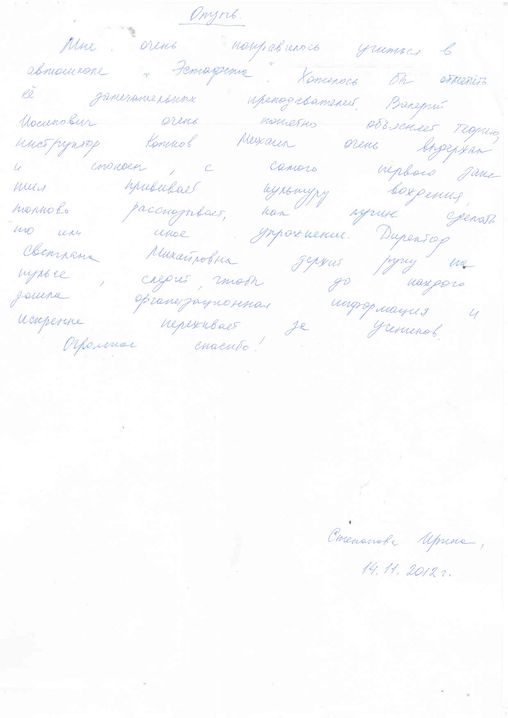 Отзыв.
Мне очень понравилось учиться в
автошколе "Эстафета". Хотелось бы отметить
её замечательных преподавателей. Валерий
Иосифович очень понятно объясняет теорию,
инструктор Михаил очень выдержан
и спокоен, с самого первого заня
тия прививает культуру вождения,
толково рассказывает, как нужно сделать
то или иное упражнение. Директор
Светлана Михайловна держит руку на
пульсе, следит, чтобы до каждого
дошла организационная информация и
искренне переживает за учеников.
Огромное спасибо!
Степанова Ирина,
14.11.2012г.